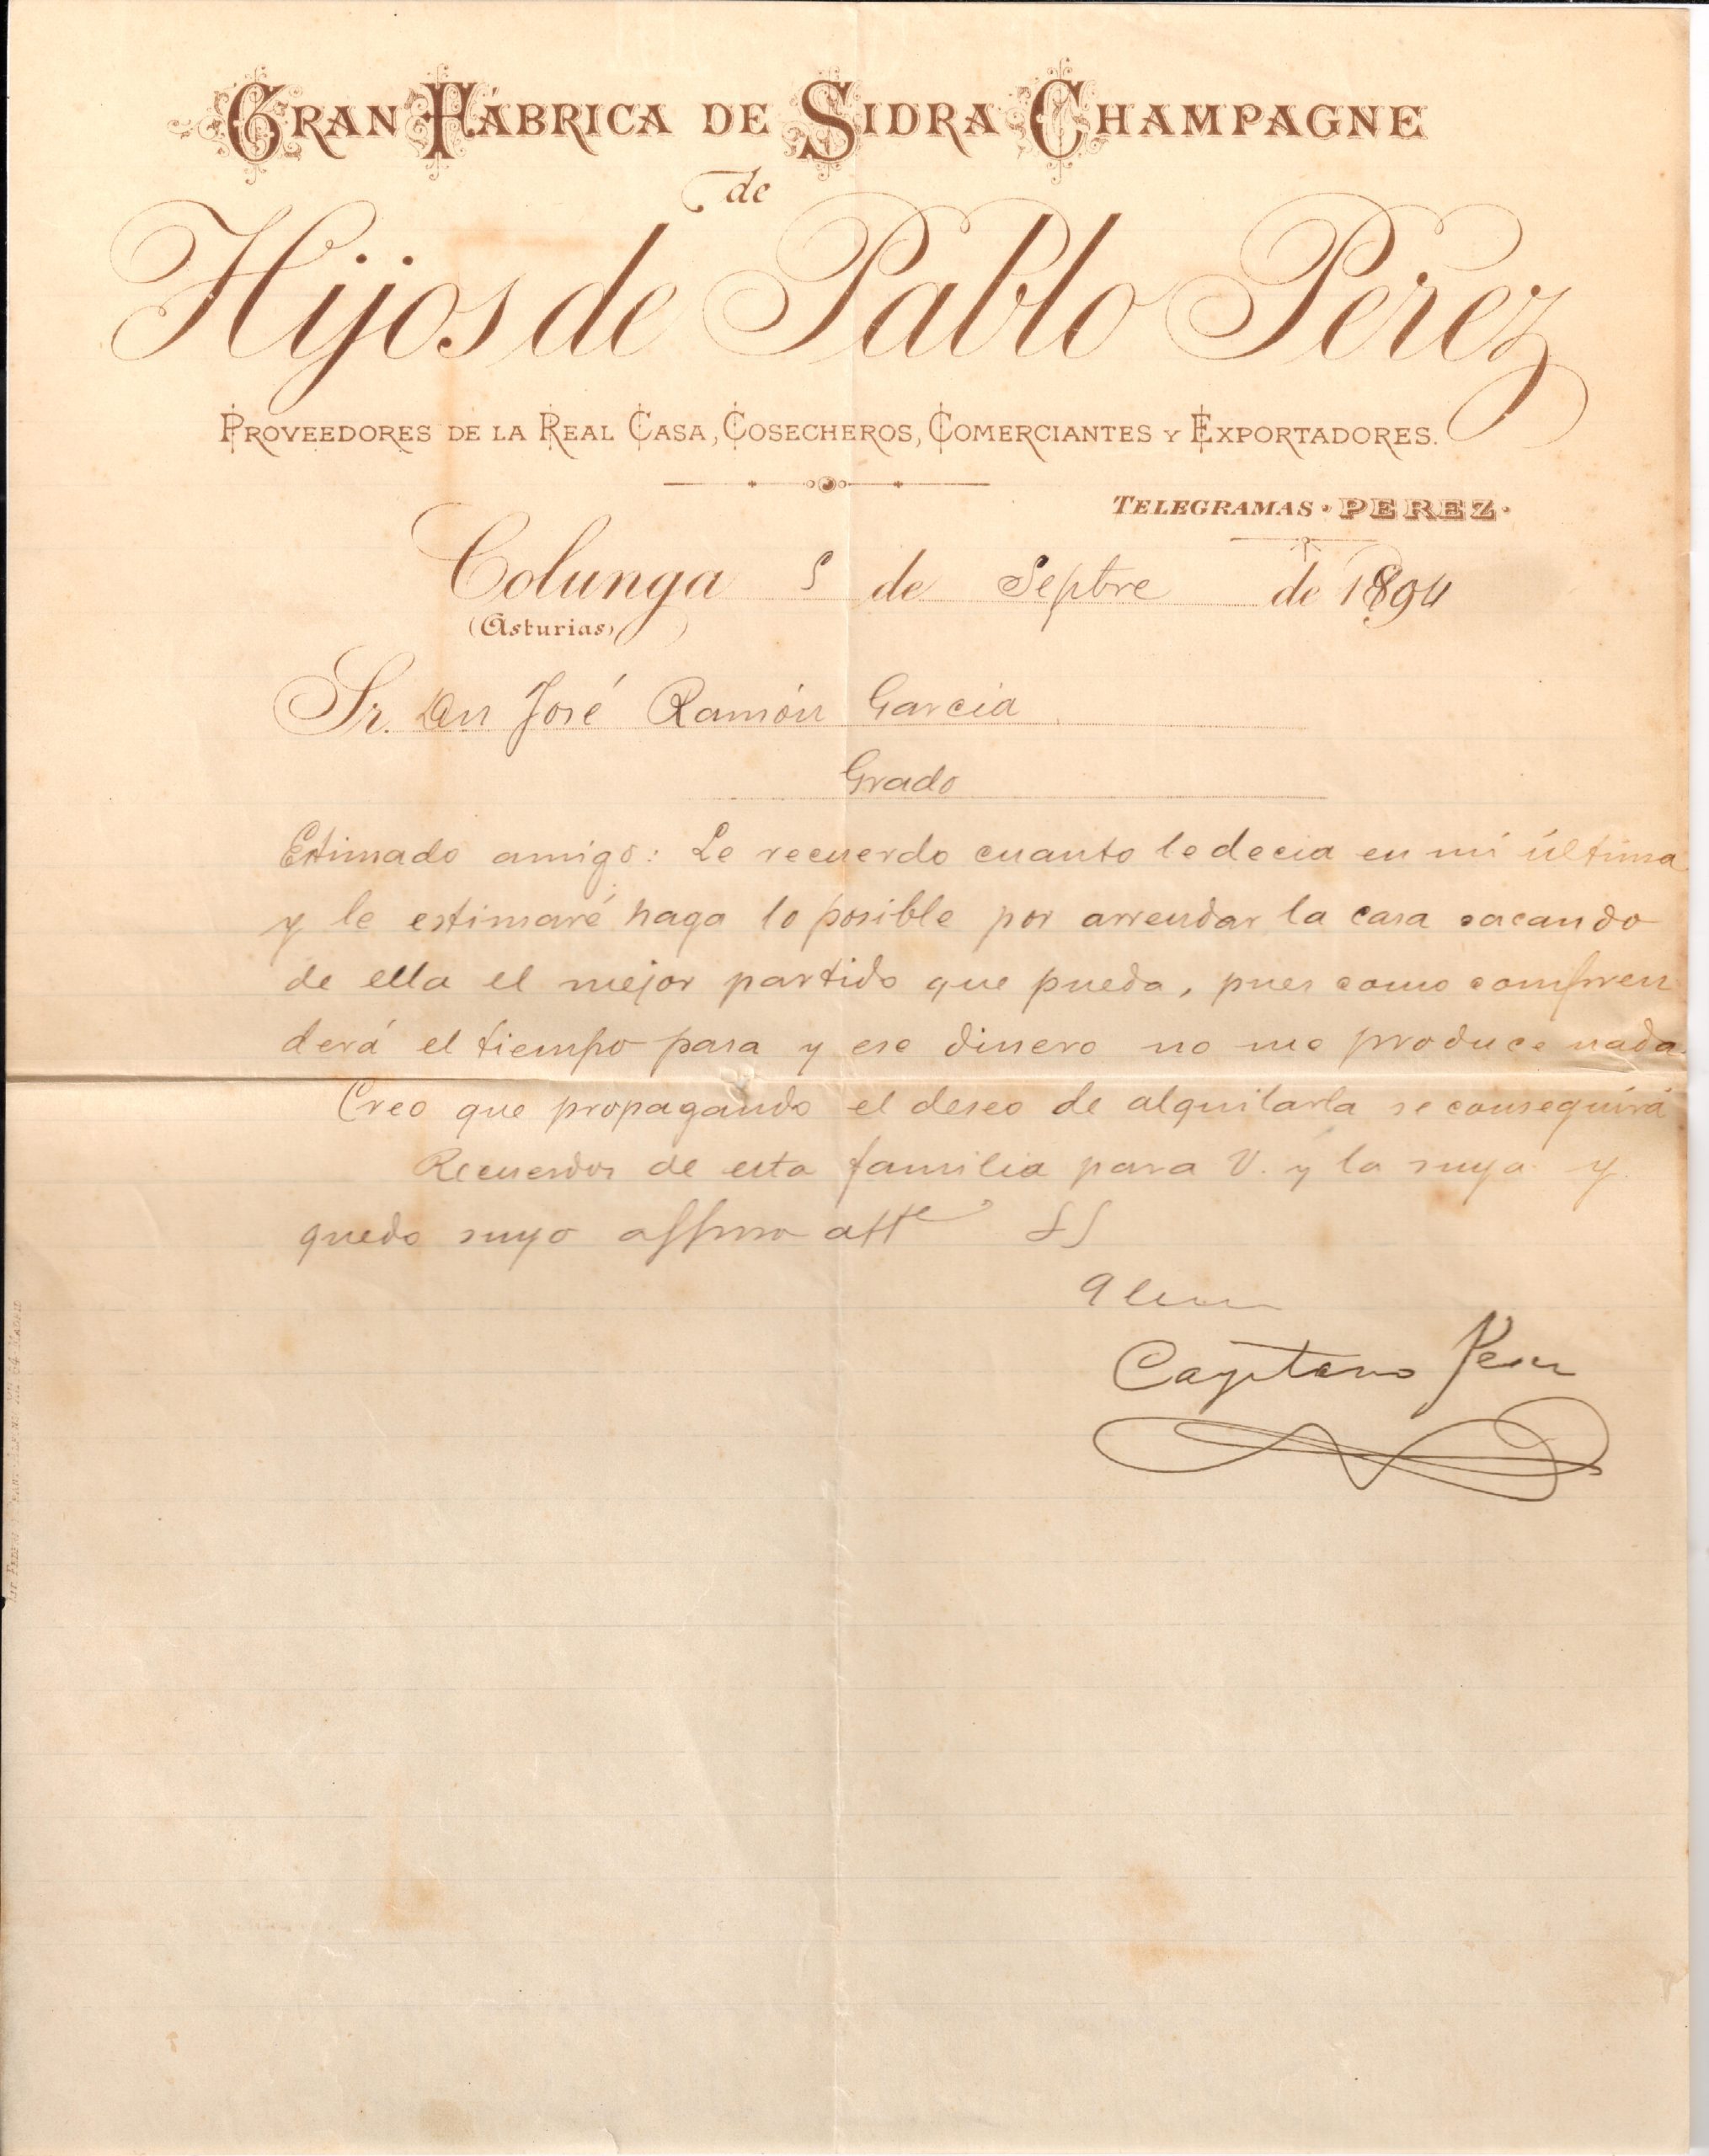 GRAN FÁBRICA DE SIDRA CHAMPAGNE
de
Hijos de Pablo Pérez
PROVEEDORES DE LA REAL CASA, COSECHEROS, COMERCIANTES Y EXPORTADORES.
TELEGRAMAS · PEREZ ·
Colunga 5 de Septbre de 1894
(Asturias)
Sr. Dn José Ramón Garcia
Grado
Estimado amigo: Le recuerdo cuanto le decia en mi última
y le estimaré haga lo posible por arrendar la casa sacando
de ella el mejor partido que pueda, pues como compren
derá el tiempo pasa y ese dinero no me produce nada.
Creo que propagando el deseo de alquilarla se conseguirá
Recuerdos de esta familia para V. y la suya y
quedo suyo affmo atte SS
Cayetano Perez